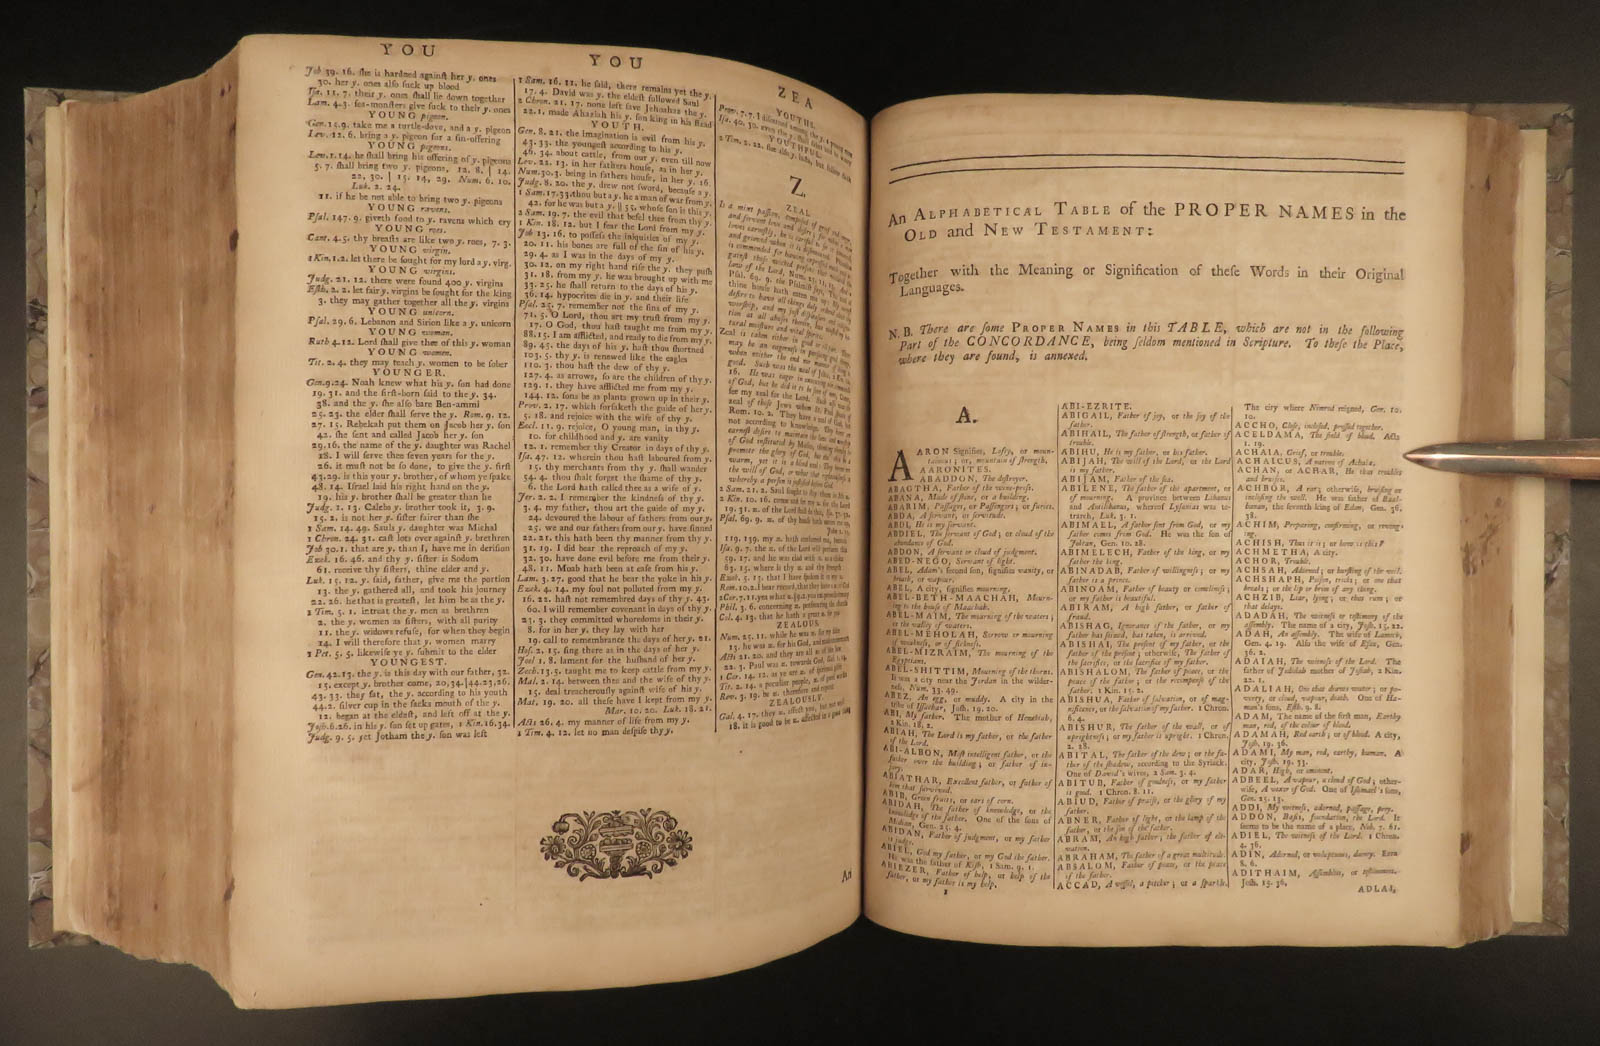 YOU
YOU
ZEA
Job 39. 16. ſhe is hardned againſt her y. ones
30. her y. ones alſo ſuck up blood
Iſa. 11. 7. their y. ones ſhall lie down together
Lam. 4. 3. ſea-monſters give ſuck to their y. ones
YOUNG pigeon.
Gen. 15. 9. take me a turtle-dove, and a y. pigeon
Lev. 12. 6. bring a y. pigeon for a ſin-offering
YOUNG pigeons.
Lev. 1. 14. he ſhall bring his offering of y. pigeons
5. 7. ſhall bring two y. pigeons, 12. 8. | 14.
22, 30. | 15. 14, 29. Num. 6. 10.
Luk. 2. 24.
11. if he be not able to bring two y. pigeons
YOUNG ravens.
Pſal. 147. 9. giveth food to y. ravens which cry
YOUNG roes.
Cant. 4. 5. thy breaſts are like two y. roes, 7. 3.
YOUNG virgin.
1 Kin. 1. 2. let there be ſought for my lord a y. virg.
YOUNG virgins.
Judg. 21. 12. there were found 400 y. virgins
Eſth. 2. 2. let fair y. virgins be ſought for the king
3. they may gather together all the y. virgins
YOUNG unicorn.
Pſal. 29. 6. Lebanon and Sirion like a y. unicorn
YOUNG woman.
Ruth 4. 12. Lord ſhall give thee of this y. woman
YOUNG women.
Tit. 2. 4. they may teach y. women to be ſober
YOUNGER.
Gen. 9. 24. Noah knew what his y. ſon had done
19. 31. and the firſt-born ſaid to the y. 34.
38. and the y. ſhe alſo bare Ben-ammi
25. 23. the elder ſhall ſerve the y. Rom. 9. 12.
27. 15. Rebekah put them on Jacob her y. ſon
42. ſhe ſent and called Jacob her y. ſon
29. 16. the name of the y. daughter was Rachel
18. I will ſerve thee ſeven years for the y.
26. it muſt not be ſo done, to give the y. firſt
43. 29. is this your y. brother, of whom ye ſpake
48. 14. Iſrael laid his right hand on the y.
19. his y. brother ſhall be greater than he
Judg. 1. 13. Calebs y. brother took it, 3. 9.
15. 2. is not her y. ſiſter fairer than ſhe
1 Sam. 14. 49. Sauls y. daughter was Michal
1 Chron. 24. 31. caſt lots over againſt y. brethren
Job 30. 1. that are y. than I, have me in deriſion
Ezek. 16. 46. and thy y. ſiſter is Sodom
61. receive thy ſiſters, thine elder and y.
Luk. 15. 12. y. ſaid, father, give me the portion
13. the y. gathered all, and took his journey
22. 26. he that is greateſt, let him be as the y.
1 Tim. 5. 1. intreat the y. men as brethren
2. the y. women as ſiſters, with all purity
11. the y. widows refuſe, for when they begin
14. I will therefore that y. women marry
1 Pet. 5. 5. likewiſe ye y. ſubmit to the elder
YOUNGEST.
Gen. 42. 13. the y. is this day with our father, 32.
15. except y. brother come, 20, 34. | 44. 23, 26.
43. 33. they ſat, the y. according to his youth
44. 2. ſilver cup in the ſacks mouth of the y.
12. began at the eldeſt, and left off at the y.
Joſh. 6. 26. in his y. ſon ſet up gates, 1 Kin. 16. 34.
Judg. 9. 5. yet Jotham the y. ſon was left
1 Sam. 16. 11. he ſaid, there remains yet the y.
17. 4. David was y. the eldeſt followed Saul
2 Chron. 21. 17. none left ſave Jehoahaz the y.
22. 1. made Ahaziah his y. ſon king in his ſtead
YOUTH.
Gen. 8. 21. the imagination is evil from his y.
43. 33. the youngeſt according to his y.
46. 34. about cattle, from our y. even till now
Lev. 22. 13. in her fathers houſe, as in her y.
Num. 30. 3. being in fathers houſe, in her y. 16.
Judg. 8. 20. the y. drew not ſword, becauſe a y.
1 Sam. 17. 33. thou but a y. he a man of war from y.
42. for he was but a y. || 55. whoſe ſon is this y.
2 Sam. 19. 7. the evil that befel thee from thy y.
1 Kin. 18. 12. but I fear the Lord from my y.
Job 13. 26. to poſſeſs the iniquities of my y.
20. 11. his bones are full of the ſin of his y.
29. 4. as I was in the days of my y.
30. 12. on my right hand riſe the y. they puſh
31. 18. from my y. he was brought up with me
33. 25. he ſhall return to the days of his y.
36. 14. hypocrites die in y. and their life
Pſal. 25. 7. remember not the ſins of my y.
71. 5. O Lord, thou art my truſt from my y.
17. O God, thou haſt taught me from my y.
88. 15. I am afflicted, and ready to die from my y.
89. 45. the days of his y. haſt thou ſhortned
103. 5. thy y. is renewed like the eagles
110. 3. thou haſt the dew of thy y.
127. 4. as arrows, ſo are the children of thy y.
129. 1. they have afflicted me from my y.
144. 12. ſons be as plants grown up in their y.
Prov. 2. 17. which forſaketh the guide of her y.
5. 18. and rejoice with the wife of thy y.
Eccl. 11. 9. rejoice, O young man, in thy y.
10. for childhood and y. are vanity
12. 1. remember thy Creator in days of thy y.
Iſa. 47. 12. wherein thou haſt laboured from y.
15. thy merchants from thy y. ſhall wander
54. 4. thou ſhalt forget the ſhame of thy y.
6. the Lord hath called thee as a wife of y.
Jer. 2. 2. I remember the kindneſs of thy y.
3. 4. my father, thou art the guide of my y.
24. devoured the labour of fathers from our y.
25. we and our fathers from our y. have ſinned
22. 21. this hath been thy manner from thy y.
31. 19. I did bear the reproach of my y.
32. 30. have done evil before me from their y.
48. 11. Moab hath been at eaſe from his y.
Lam. 3. 27. good that he bear the yoke in his y.
Ezek. 4. 14. my ſoul not polluted from my y.
16. 22. haſt not remembred days of thy y. 43.
60. I will remember covenant in days of thy y.
23. 3. they committed whoredoms in their y.
8. for in her y. they lay with her
19. call to remembrance the days of her y. 21.
Hoſ. 2. 15. ſing there as in the days of her y.
Joel 1. 8. lament for the huſband of her y.
Zech. 13. 5. taught me to keep cattle from my y.
Mal. 2. 14. between thee and the wife of thy y.
15. deal treacherouſly againſt wife of his y.
Mat. 19. 20. all theſe have I kept from my y.
Mar. 10. 20. Luk. 18. 21.
Acts 26. 4. my manner of life from my y.
1 Tim. 4. 12. let no man deſpiſe thy y.
YOUTHS.
Prov. 7. 7. I diſcerned among the y. a young man
YOUTHFUL.
Z.
ZEAL
ZEALOUS.
Num. 25. 11. while he was z. for my ſake
ZEALOUSLY.
Gal. 4. 17. they z. affect you, but not well
18. it is good to be z. affected in a good
An
An ALPHABETICAL TABLE of the PROPER NAMES in the
OLD and NEW TESTAMENT:
Together with the Meaning or Signification of theſe Words in their Original
Languages.
N. B. There are ſome PROPER NAMES in this TABLE, which are not in the following
Part of the CONCORDANCE, being ſeldom mentioned in Scripture. To theſe the Place,
where they are found, is annexed.
A.
AARON Signifies, Lofty, or moun-
tainous; or, mountain of ſtrength,
AARONITES.
ABADDON, The deſtroyer.
ABAGTHA, Father of the wine-preſs.
ABANA, Made of ſtone, or a building.
ABARIM, Paſſages, or Paſſengers; or furies.
ABDA, A ſervant, or ſervitude.
ABDI, He is my ſervant.
ABDIEL, The ſervant of God; or cloud of the
abundance of God.
ABDON, A ſervant or cloud of judgment.
ABED-NEGO, Servant of light.
ABEL, Adam's ſecond ſon, ſignifies vanity, or
breath, or vapour.
ABEL, A city, ſignifies mourning.
ABEL-BETH-MAACHAH, Mourn-
ing to the houſe of Maachah.
ABEL-MAIM, The mourning of the waters;
or the valley of waters.
ABEL-MEHOLAH, Sorrow or mourning
of weakneſs, or of ſickneſs.
ABEL-MIZRAIM, The mourning of the
Egyptians.
ABEL-SHITTIM, Mourning of the thorns.
It was a city near the Jordan in the wilder-
neſs, Num. 33. 49.
ABEZ, An egg, or muddy. A city in the
tribe of Iſſachar, Joſh. 19. 20.
ABI, My father. The mother of Hezekiah,
2 Kin. 18. 2.
ABIAH, The Lord is my father, or the father
of the Lord.
ABI-ALBON, Moſt intelligent father, or the
father over the building; or father of in-
jury.
ABIATHAR, Excellent father, or father of
him that ſurvived.
ABIB, Green fruits, or ears of corn.
ABIDAH, The father of knowledge, or the
knowledge of the father. One of the ſons of
Midian, Gen. 25. 4.
ABIDAN, Father of judgment, or my father
judges.
ABIEL, God my father, or my God the father.
He was the father of Kiſh, 1 Sam. 9. 1.
ABIEZER, Father of help, or help of the
father, or my father is my help,
ABI-EZRITE.
ABIGAIL, Father of joy, or the joy of the
father.
ABIHAIL, The father of ſtrength, or father of
trouble.
ABIHU, He is my father, or his father.
ABIJAH, The will of the Lord, or the Lord
is my father.
ABIJAM, Father of the ſea.
ABILENE, The father of the apartment, or
of mourning. A province between Libanus
and Antilibanus, whereof Lyſanias was te-
trarch, Luk. 3. 1.
ABIMAEL, A father ſent from God, or my
father comes from God. He was the ſon of
Joktan, Gen. 10. 28.
ABIMELECH, Father of the king, or my
father the king.
ABINADAB, Father of willingneſs; or my
father is a prince.
ABINOAM, Father of beauty or comelineſs;
or my father is beautiful.
ABIRAM, A high father, or father of
fraud.
ABISHAG, Ignorance of the father, or my
father has ſeized, has taken, is arrived.
ABISHAI, The preſent of my father, or the
father of the preſent; otherwiſe, The father of
the ſacrifice, or the ſacrifice of my father.
ABISHALOM, The father of peace, or the
peace of the father; or the recompenſe of the
father. 1 Kin. 15. 2.
ABISHUA, Father of ſalvation, or of mag-
nificence, or the ſalvation of my father. 1 Chron.
6. 4.
ABISHUR, The father of the wall, or of
uprightneſs; or my father is upright. 1 Chron.
2. 28.
ABITAL, The father of the dew; or the fa-
ther of the ſhadow, according to the Syriack.
One of David's wives, 2 Sam. 3. 4.
ABITUB, Father of goodneſs, or my father
is good. 1 Chron. 8. 11.
ABIUD, Father of praiſe, or the glory of my
father.
ABNER, Father of light, or the lamp of the
father, or the ſon of the father.
ABRAM, An high father; the father of ele-
vation.
ABRAHAM, The father of a great multitude.
ABSALOM, Father of peace, or the peace
of the father.
ACCAD, A veſſel, a pitcher; or a ſparkle.
The city where Nimrod reigned, Gen. 10.
10.
ACCHO, Cloſe, incloſed, preſſed together.
ACELDAMA, The field of blood. Acts
1. 19.
ACHAIA, Grief, or trouble.
ACHAICUS, A native of Achaia.
ACHAN, or ACHAR, He that troubles
and bruiſes.
ACHBOR, A rat; otherwiſe, bruiſing or
incloſing the well. He was father of Baal-
hanan, the ſeventh king of Edom, Gen. 36.
38.
ACHIM, Preparing, confirming, or reveng-
ing.
ACHISH, Thus it is; or how is this?
ACHMETHA, A city.
ACHOR, Trouble.
ACHSAH, Adorned; or burſting of the veil.
ACHSHAPH, Poiſon, tricks; or one that
breaks; or the lip or brim of any thing.
ACHZIB, Liar, lying; or that runs; or
that delays.
ADADAH, The witneſs or teſtimony of the
aſſembly. The name of a city, Joſh. 15. 22.
ADAH, An aſſembly. The wife of Lamech,
Gen. 4. 19. Alſo the wife of Eſau, Gen.
36. 2.
ADAIAH, The witneſs of the Lord. The
father of Jedidah mother of Joſiah, 2 Kin.
22. 1.
ADALIAH, One that draws water; or po-
verty, or cloud, vapour, death. One of Ha-
man's ſons, Eſth. 9. 8.
ADAM, The name of the firſt man, Earthy
man, red, of the colour of blood.
ADAMAH, Red earth; or of blood. A city,
Joſh. 19. 36.
ADAMI, My man, red, earthy, human. A
city, Joſh. 19. 33.
ADAR, High, or eminent.
ADBEEL, A vapour, a cloud of God; other-
wiſe, A vexer of God. One of Iſhmael's ſons,
Gen. 25. 13.
ADDI, My witneſs, adorned, paſſage, prey.
ADDON, Baſis, foundation, the Lord. It
ſeems to be the name of a place, Neh. 7. 61.
ADIEL, The witneſs of the Lord. 1 Chron.
4. 36.
ADIN, Adorned, or voluptuous, dainty. Ezra
8. 6.
ADITHAIM, Aſſemblies, or teſtimonies.
Joſh. 15. 36.
ADLAI,